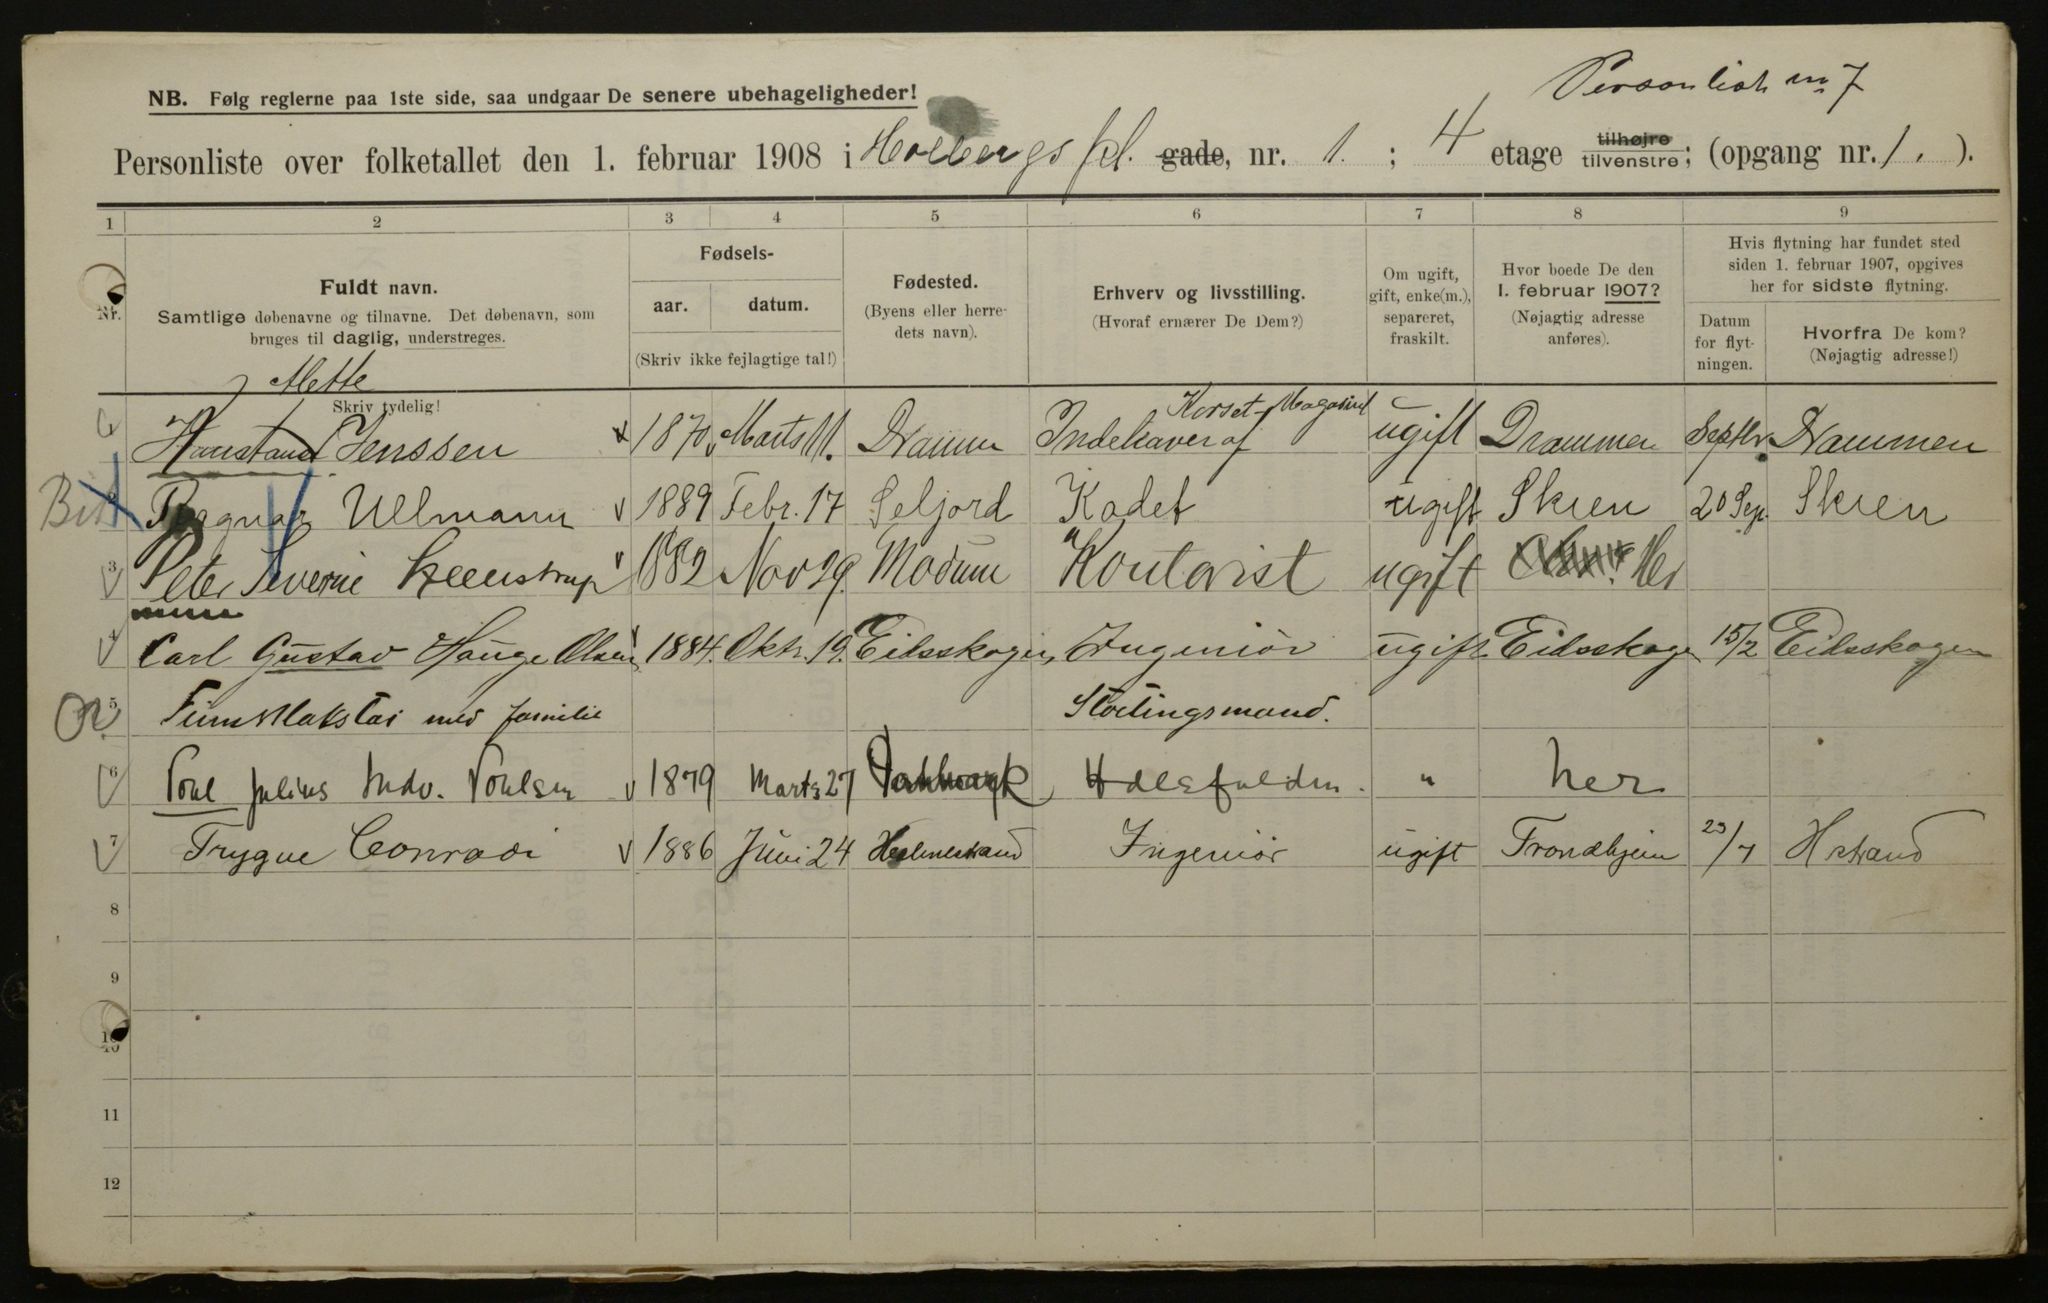 Personlist no 7
NB. Følg reglerne paa 1ste side, saa undgaar De senere ubehageligheder!
Personliste over folketallet den 1. februar 1908 i Holbergs pl. gade, nr. 1. ; 4 etage tilhøjre tilvenstre; (opgang nr. 1. ).
1 2 3 4 5 6 7 8 9
Nr.
Fuldt navn.
Samtlige døbenavne og tilnavne. Det døbenavn, som
bruges til daglig, understreges.
Skriv tydelig!
Fødsels-
aar. datum.
(Skriv ikke fejlagtige tal!)
Fødested.
(Byens eller herre-
dets navn).
Erhverv og livsstilling.
(Hvoraf ernærer De Dem?)
Om ugift,
gift, enke(m.),
separeret,
fraskilt.
Hvor boede De den
1. februar 1907?
(Nøjagtig adresse
anføres).
Hvis flytning har fundet sted
siden 1. februar 1907, opgives
her for sidste flytning.
Datum
for flyt-
ningen.
Hvorfra De kom?
(Nøjagtig adresse!)
Mette
Jenssen 1870 Marts 11. Dramm Indehaver af Korset-Magasin ugift Drammen Septbr. Drammen
2 Ragnar Ullmann 1889 Febr. 17 Seljord Kadet ugift Skien 20 Sep. Skien
3 Peter Severin Steenstrup 1882 Nov 29. Modum Kontorist ugift Her
4 Carl Gustav Hauge Olsen 1884. Oktr. 19. Eidsskogen Ingeniør ugift Eidsskogen 15/2 Eidsskogen
5 med familie Stortingsmand.
6 Poul Julius Poulsen 1879 Marts 27 " her
7 Trygve Conradi 1886 Juni 24 Holmestrand Ingeniør ugift Trondhjem 23/7 Hstrand
8
9
10
11
12